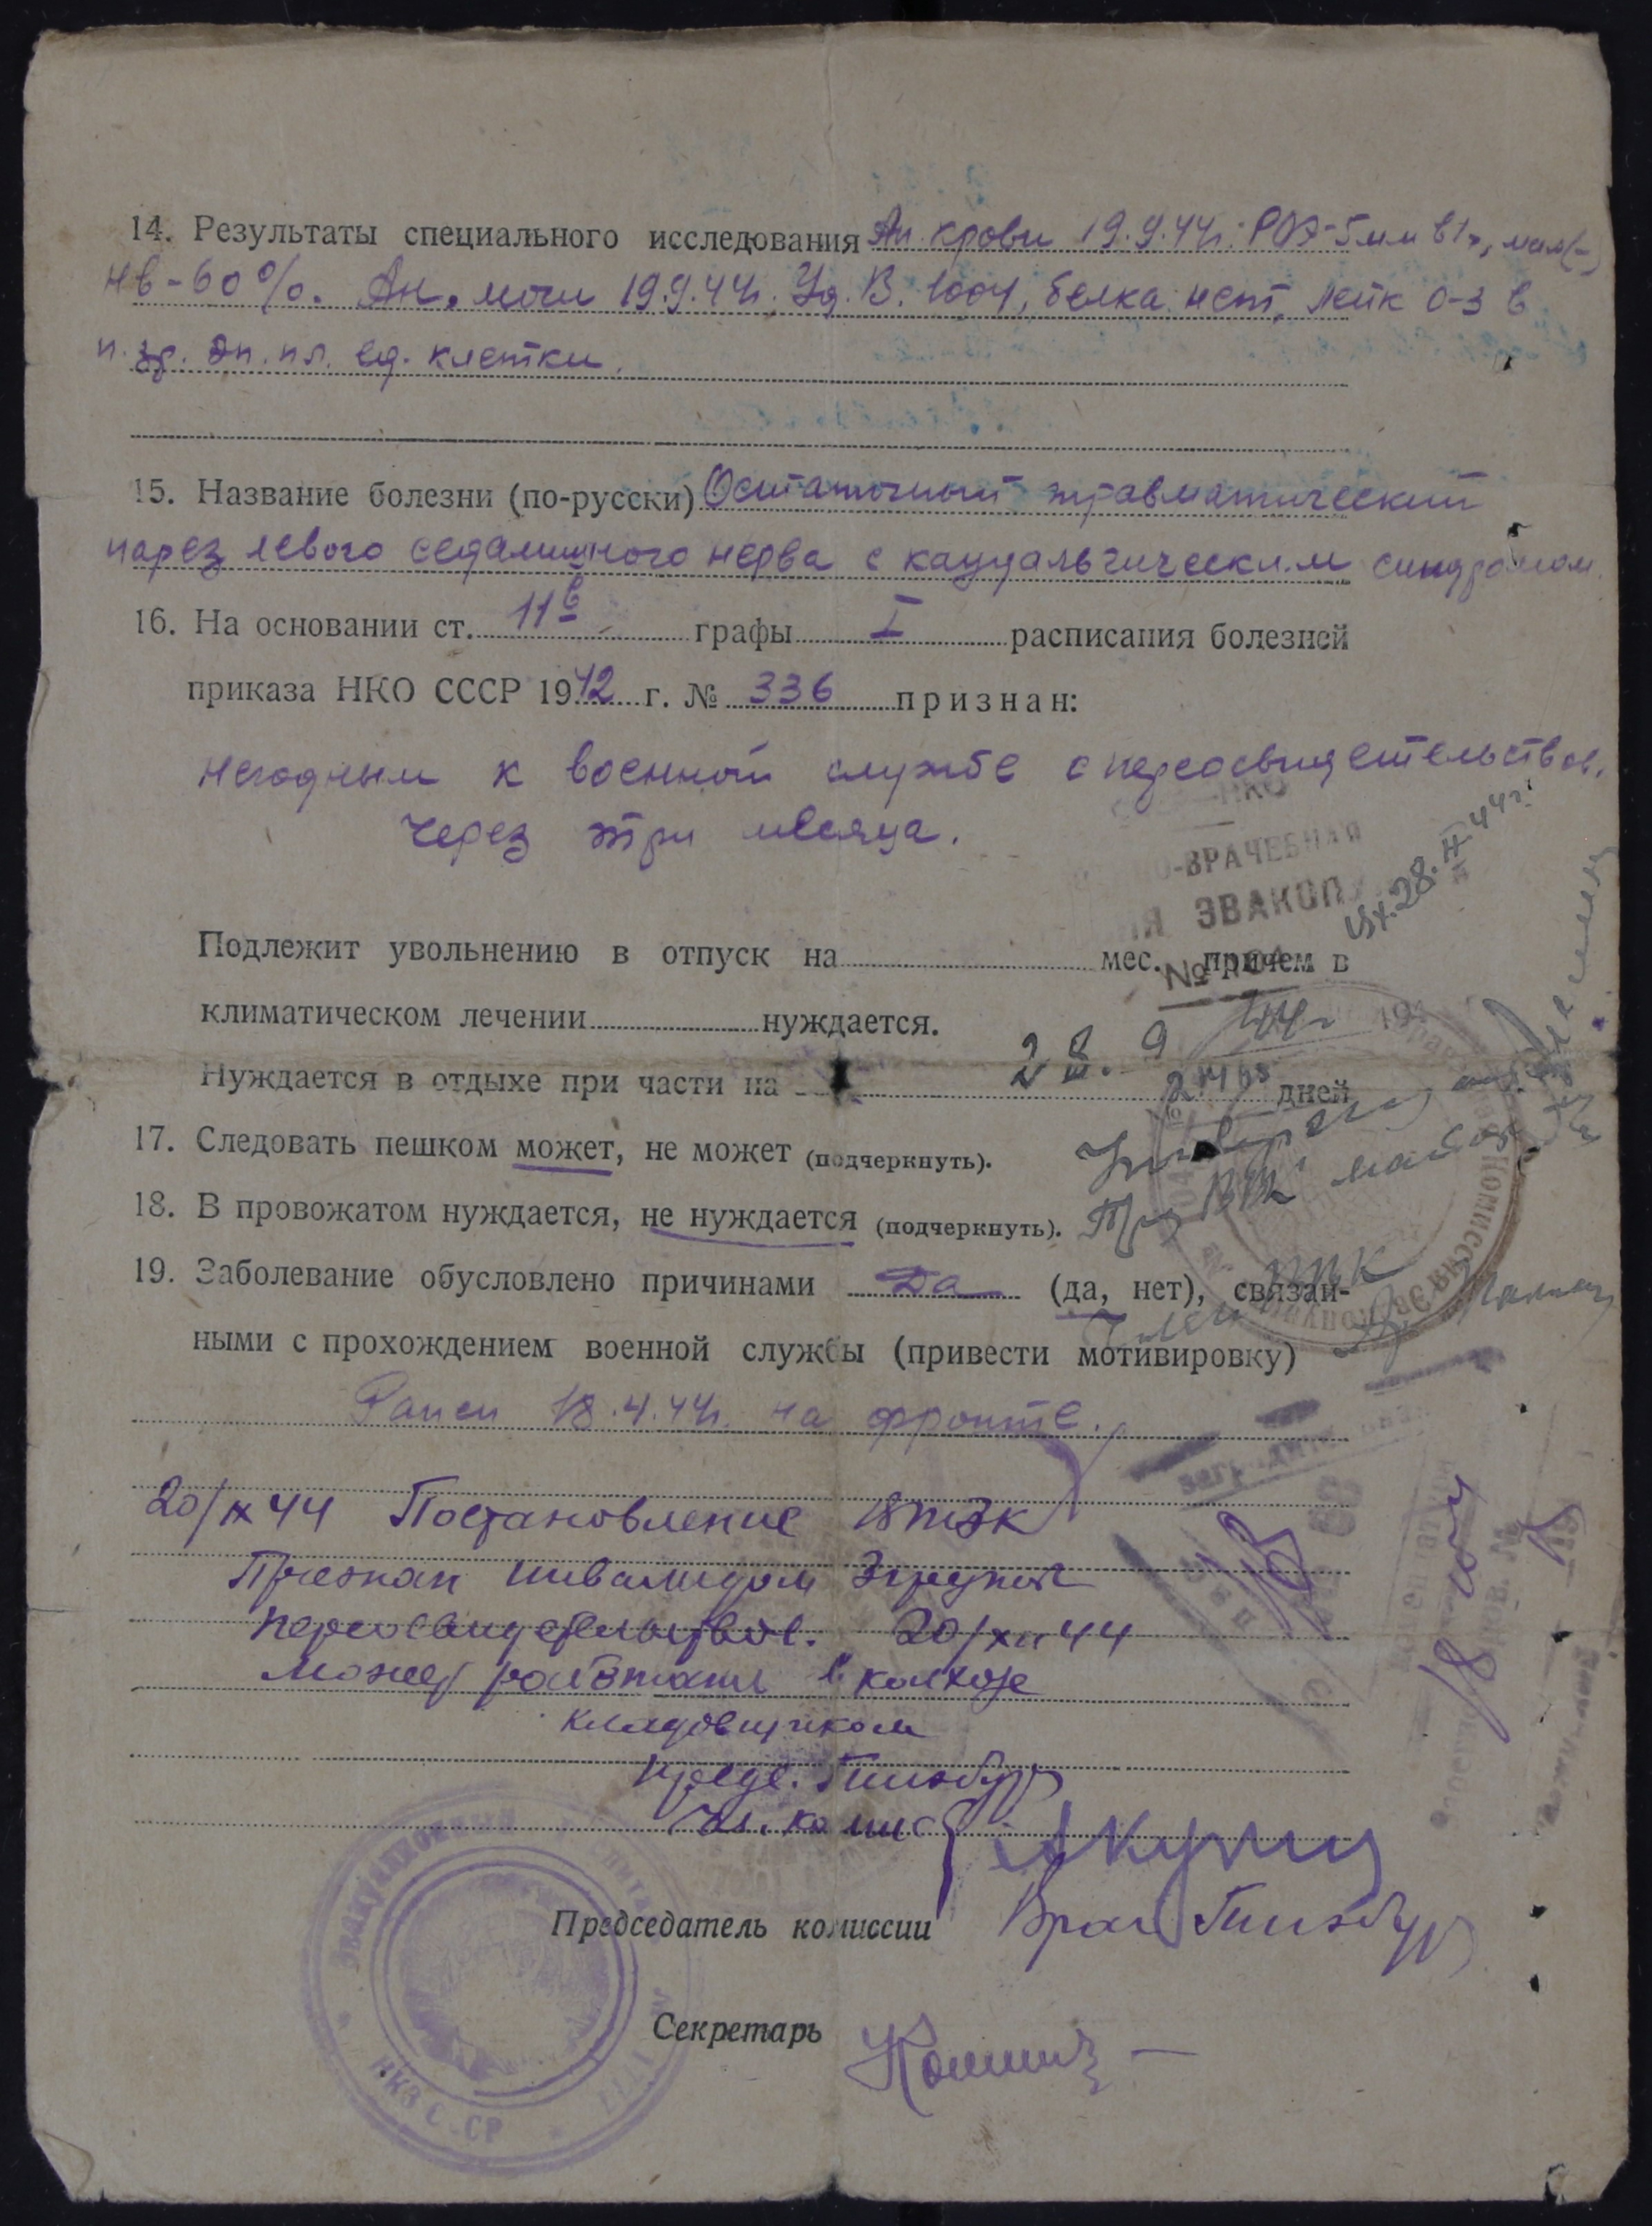 14. Результаты специального исследования Ан. крови 19.9.44г. РОЭ-5мм в 1ч, мал(-)
Нв-60%. Ан. мочи 19.9.44г. Уд. В. 1004, белка нет, лейк 0-3 в
п. зр. эп. пл. ед. клетки.
15. Название болезни (по-русски) Остаточный травматический
парез левого седалищного нерва с каузальгическим синдромом.
16. На основании ст. 11б графы I расписания болезней
приказа НКО СССР 1942 г. № 336 признан:
негодным к военной службе с переосвидетельствов.
через три месяца.
НКО
-ВРАЧЕБНАЯ
ЭВАКОП
вх. 28.IX 44г.
Подлежит увольнению в отпуск на мес. причем в
№
климатическом лечении нуждается.
28. 9 44г
Нуждается в отдыхе при части на дней
17. Следовать пешком может, не может (подчеркнуть).
18. В провожатом нуждается, не нуждается (подчеркнуть).
ВВК
19. Заболевание обусловлено причинами Да (да, нет), связан-
ными с прохождением военной службы (привести мотивировку)
Ранен 18.4.44г. на фронте.
20/IX 44 Постановление ВТЭК
Признан инвалидом 3 группы
переосвидетельствов. 20/XII 44
Может работать в колхозе
кладовщиком
Предс. Гинзбург
Чл. комис
Председатель комиссии Врач Гинзбург
Секретарь
Эвакуационный
НКЗ СССР
1777